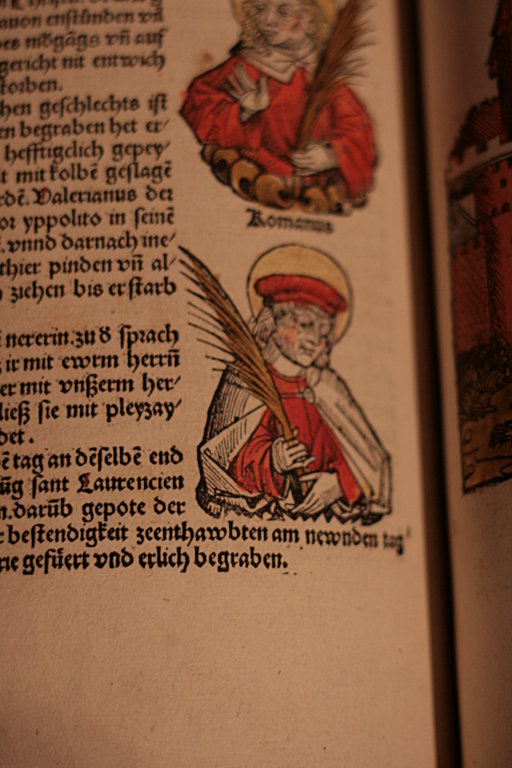 auon enstůnden vñ
es mőgãgs vñ auf
gericht nit entwich
storben.
hen geschlechts ist
en begraben het er⸗
hefftigclich gepey⸗
t mit kolbẽ geslagẽ
rdẽ. Valerianus der
or yppolito in seinẽ
vnnd darnach ine⸗
thier pinden vñ al⸗
ziehen bis er starb
Romanus
nererin. zu d sprach
ir mit ewrm herrñ
er mit vnßerm her⸗
ließ sie mit pleyzay⸗
det.
ẽ tag an dẽselbẽ end
ũg sant Laurencien
n. darũb gepote der
r bestendigkeit zeenthawbten am newnden tag
rie gefüert vnd erlich begraben.